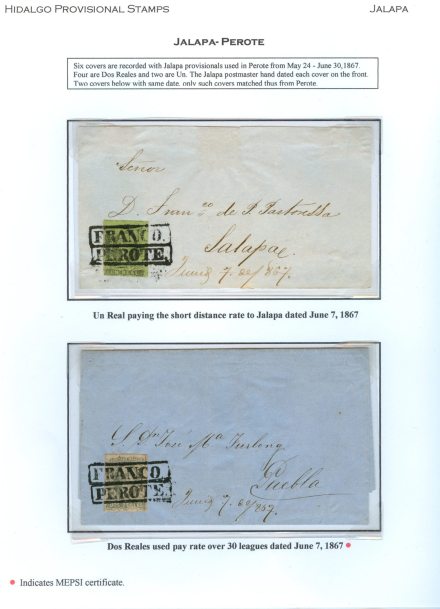 HIDALGO PROVISIONAL STAMPS JALAPA
JALAPA-PEROTE
Six covers are recorded with Jalapa provisionals used in Perote from May 24 - June 30,1867.
Four are Dos Reales and two are Un. The Jalapa postmaster hand dated each cover on the front.
Two covers below with same date. only such covers matched thus from Perote.
Señor
D. Franco de P. Pastoressa
Jalapa
FRANCO.
PEROTE.
UN REAL
Junio 7. de/867.
Un Real paying the short distance rate to Jalapa dated June 7, 1867
S. Dn José Ma Furlong
Puebla
FRANCO.
PEROTE.
Junio 7. de/867.
Dos Reales used pay rate over 30 leagues dated June 7, 1867
Indicates MEPSI certificate.